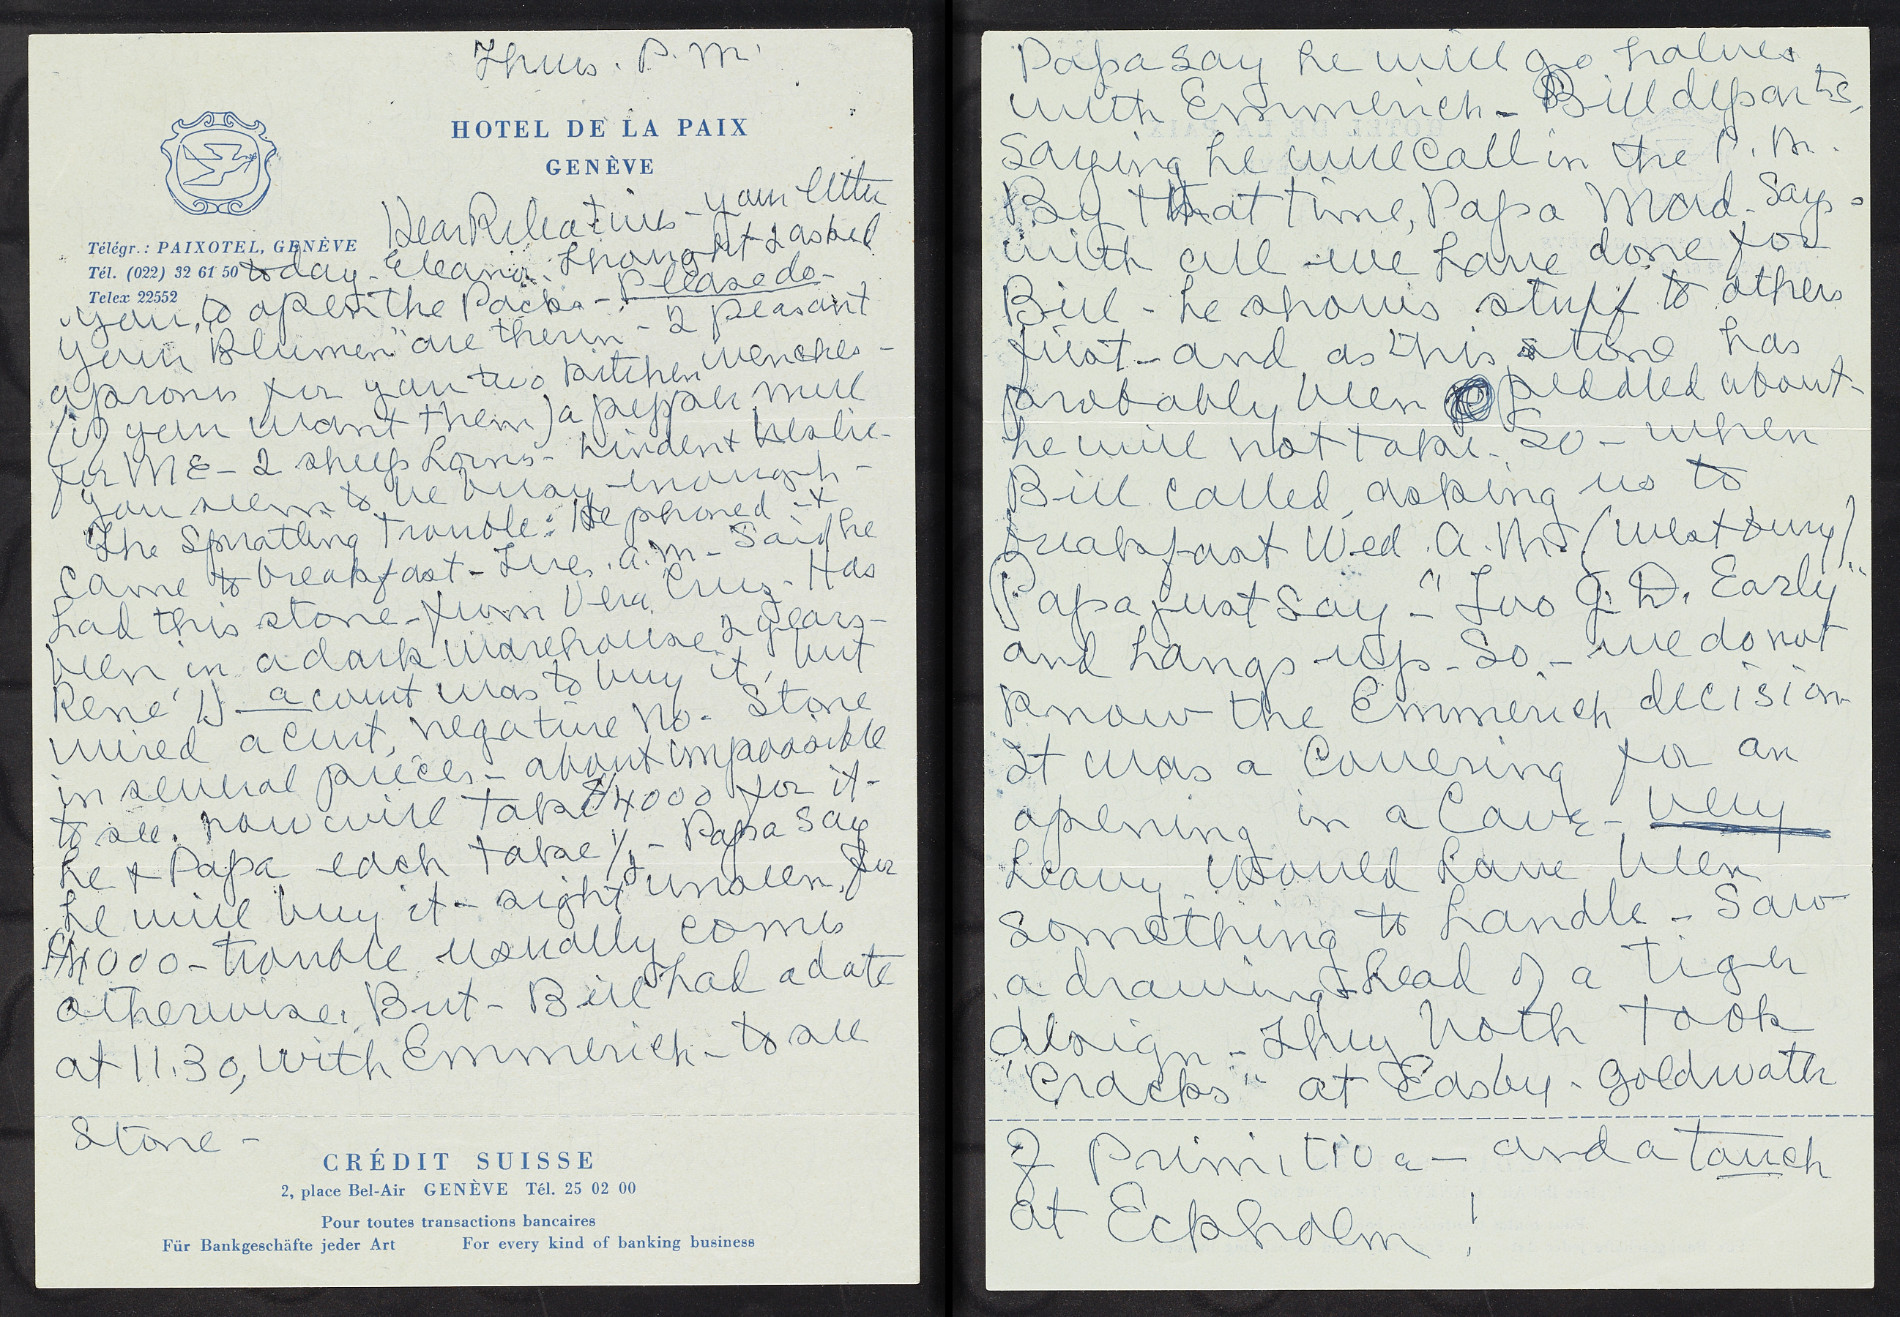 Thurs. P.M.
HOTEL DE LA PAIX
GENÈVE
Dear Releatives - your letter
Télégr.: PAIXOTEL, GENÈVE
Tél. (022) 32 61 50
Telex 22552
today. Eleanor thought I asked
you, to open the Packs - Please do -
your "Blumen" are therin - 2 peasant
aprons for you two kitchen wenches -
(if you want them) a pepper mill
for ME - 2 sheep horns -
you seem to be busy enough -
The Spratling Trouble: He phoned +
came to breakfast - Tues. a.m. - Said he
had this stone - from Vera Cruz. Has
been in a dark warehouse 2 years -
René D. a count was to buy it, but
wired a curt, negative No. Stone
in several pieces - about impossible
to see. now will take $4000 for it -
he + Papa each take 1/2 - Papa say
he will buy it - sight unseen, for
$4000 - trouble usually comes
otherwise. But - Bill had a date
at 11.30, with Emmerich - to see
stone -
CRÉDIT SUISSE
2, place Bel-Air GENÈVE Tél. 25 02 00
Pour toutes transactions bancaires
Für Bankgeschäfte jeder Art For every kind of banking business
Papa say he will go halves
with Emmerich - Bill departs,
saying he will call in the P.M.
By that time, Papa Mad. Says -
with all we have done for
Bill - he shows stuff to others
first - and as this stone has
probably been peddled about -
he will not take. So - when
Bill called, asking us to
breakfast Wed. A.M. (Westbury)
(Papa just say - "Too G. D. Early"
and hangs up - So - we do not
know the Emmerich decision
It was a Covering for an
opening in a Cave - very
heavy. Would have been
something to handle - Saw
a drawing + head of a Tiger
design - They both Took
"Cracks" at Easby. Goldwater
of Primitive - and a touch
at Eckholm!